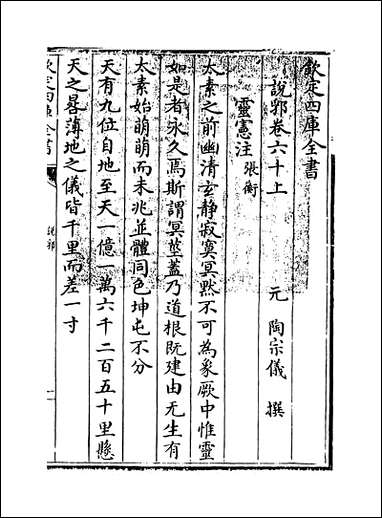 欽定四庫全書
說郛卷六十上
元 陶宗儀 撰
靈憲注 張衡
太素之前幽清玄静寂寞冥默不可為象厥中惟靈
如是者永久焉斯謂冥莖蓋乃道根既建由无生有
太素始萌萌而未兆並體同色坤屯不分
天有九位自地至天一億一萬六千二百五十里懸
天之晷薄地之儀皆千里而差一寸
欽定四庫全書
說郛
一